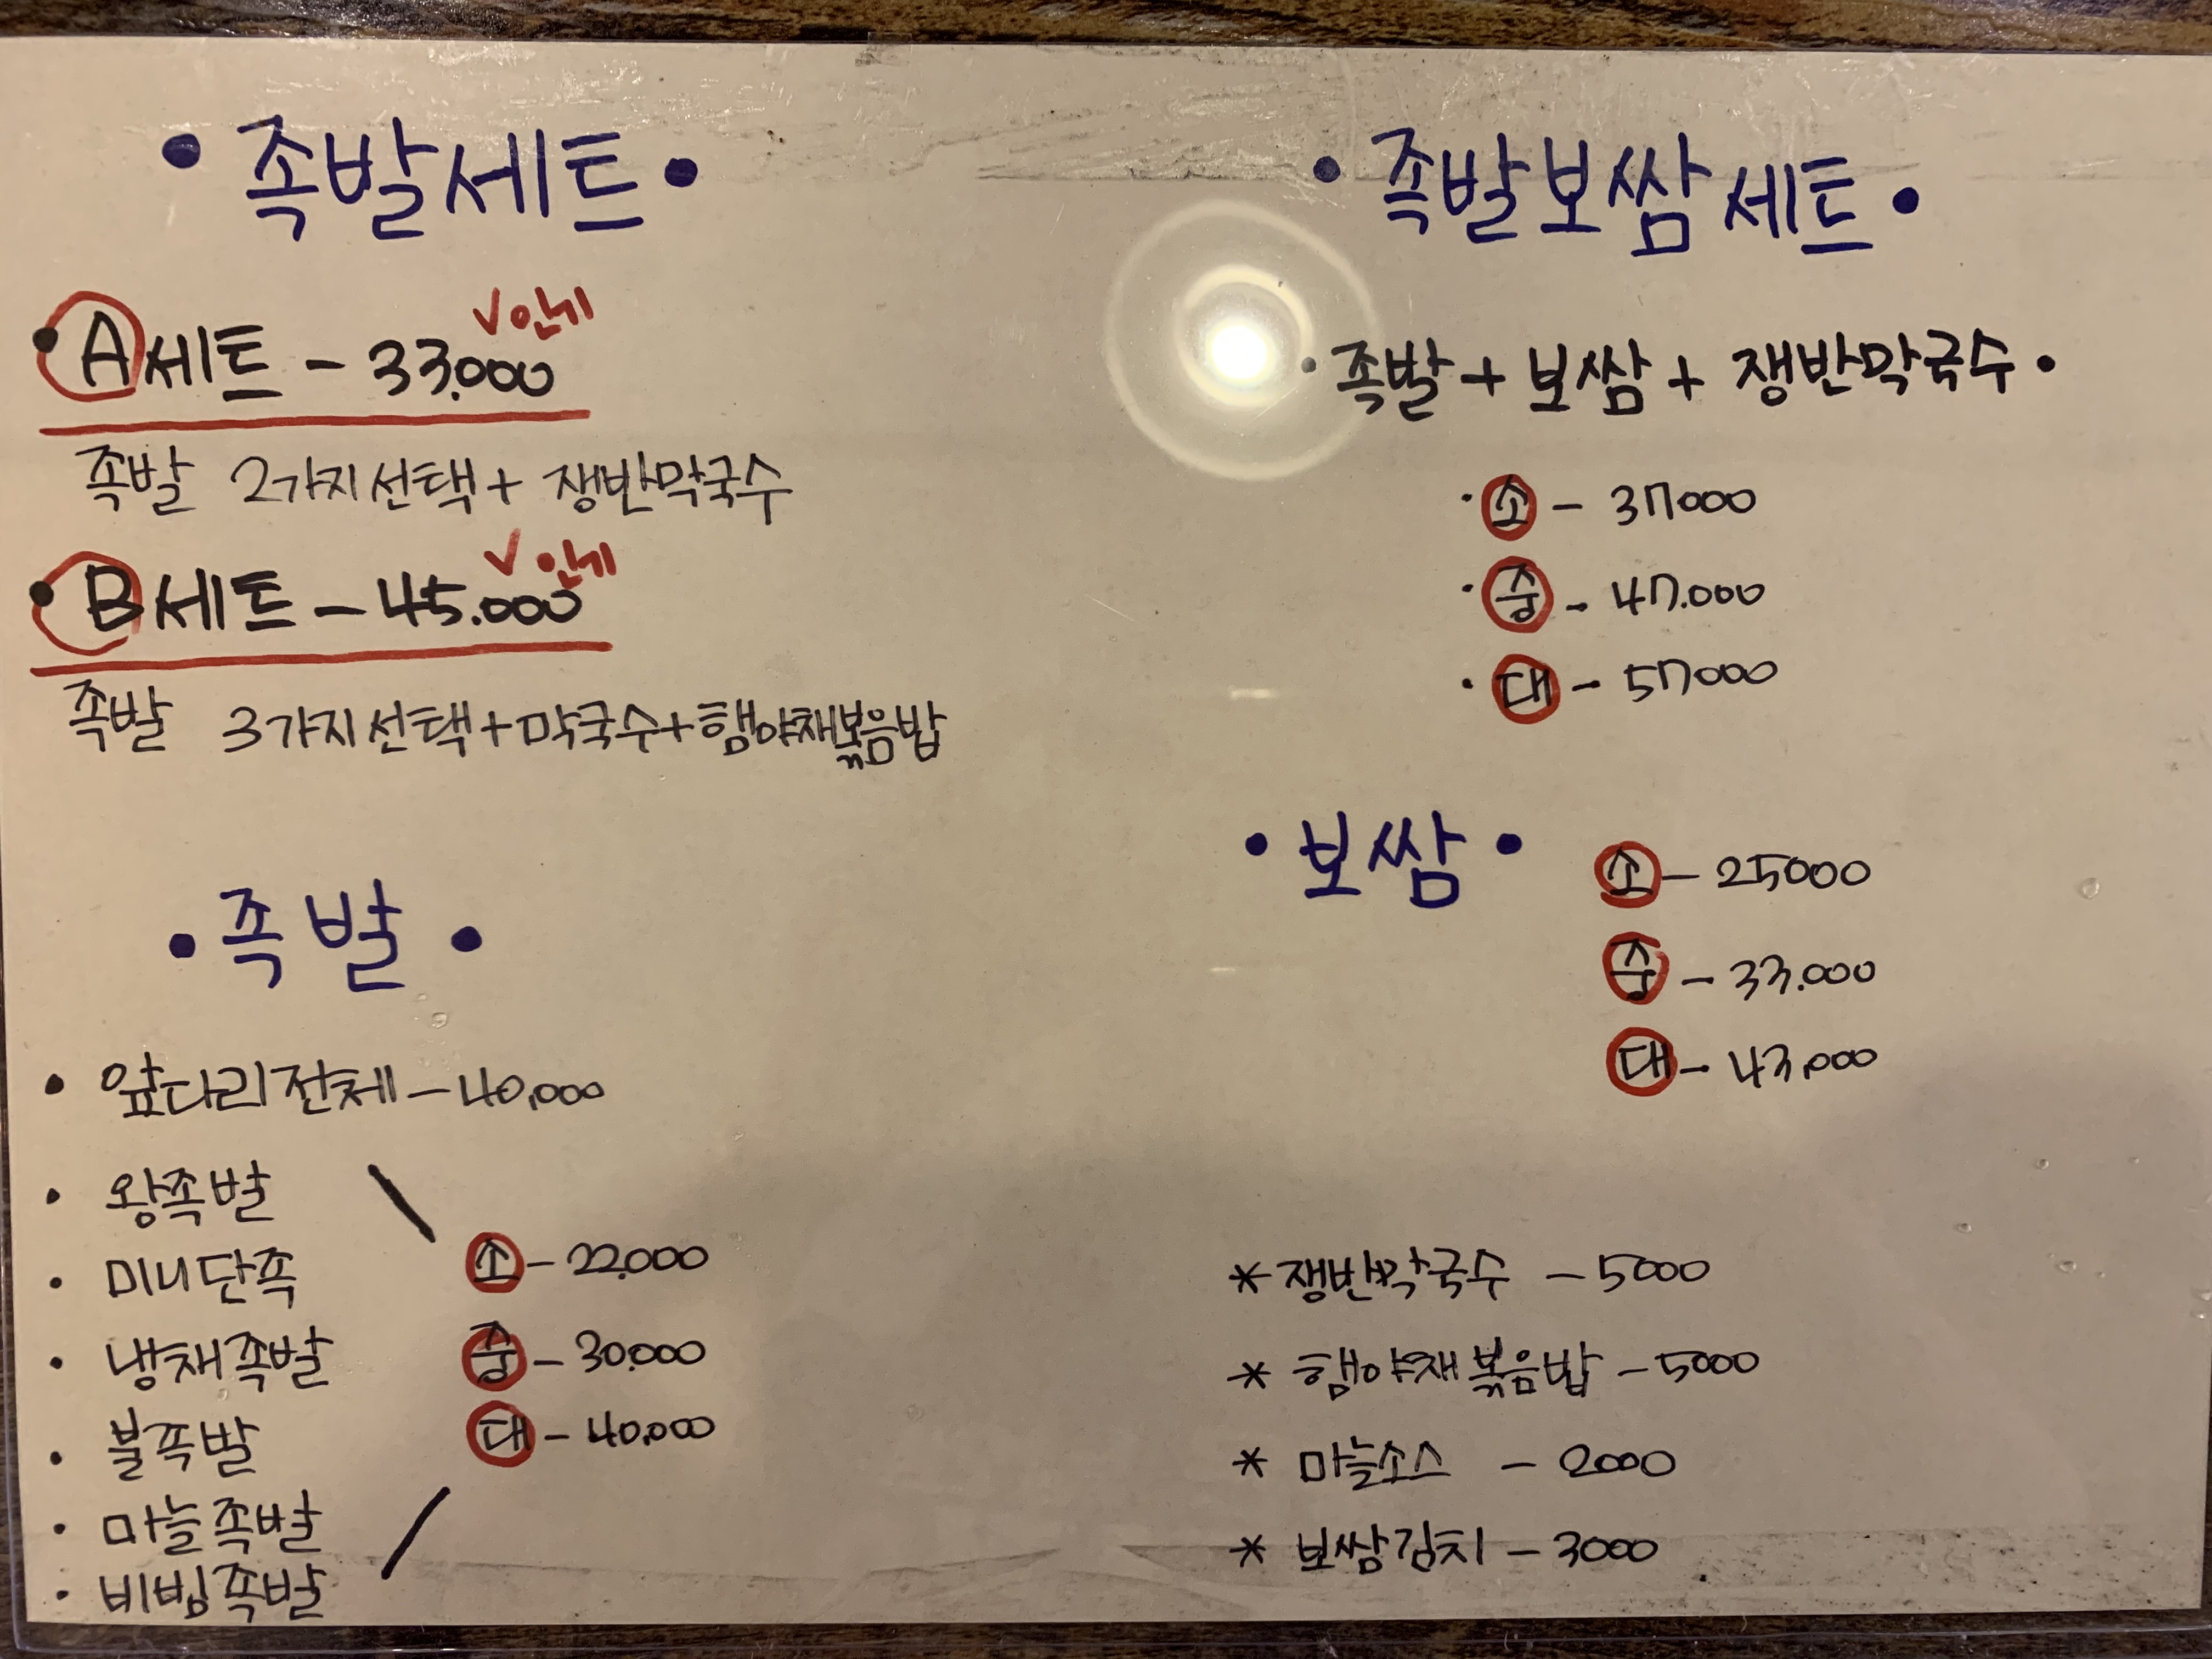 • 족발세트 •
✓인기
• A세트 - 33,000
족발 2가지선택 + 쟁반막국수
✓인기
• B세트 - 45.000
족발 3가지선택+막국수+햄야채볶음밥
• 족발 •
• 앞다리전체 - 40,000
• 왕족발
• 미니단족
• 냉채족발
• 불족발
• 마늘족발
• 비빔족발
소 - 22,000
중 - 30,000
대 - 40,000
• 족발보쌈세트 •
• 족발 + 보쌈 + 쟁반막국수 •
• 소 - 37000
• 중 - 47.000
• 대 - 57000
• 보쌈 •
소 - 25000
중 - 33.000
대 - 43,000
* 쟁반막국수 - 5000
* 햄야채볶음밥 - 5000
* 마늘소스 - 2000
* 보쌈김치 - 3000